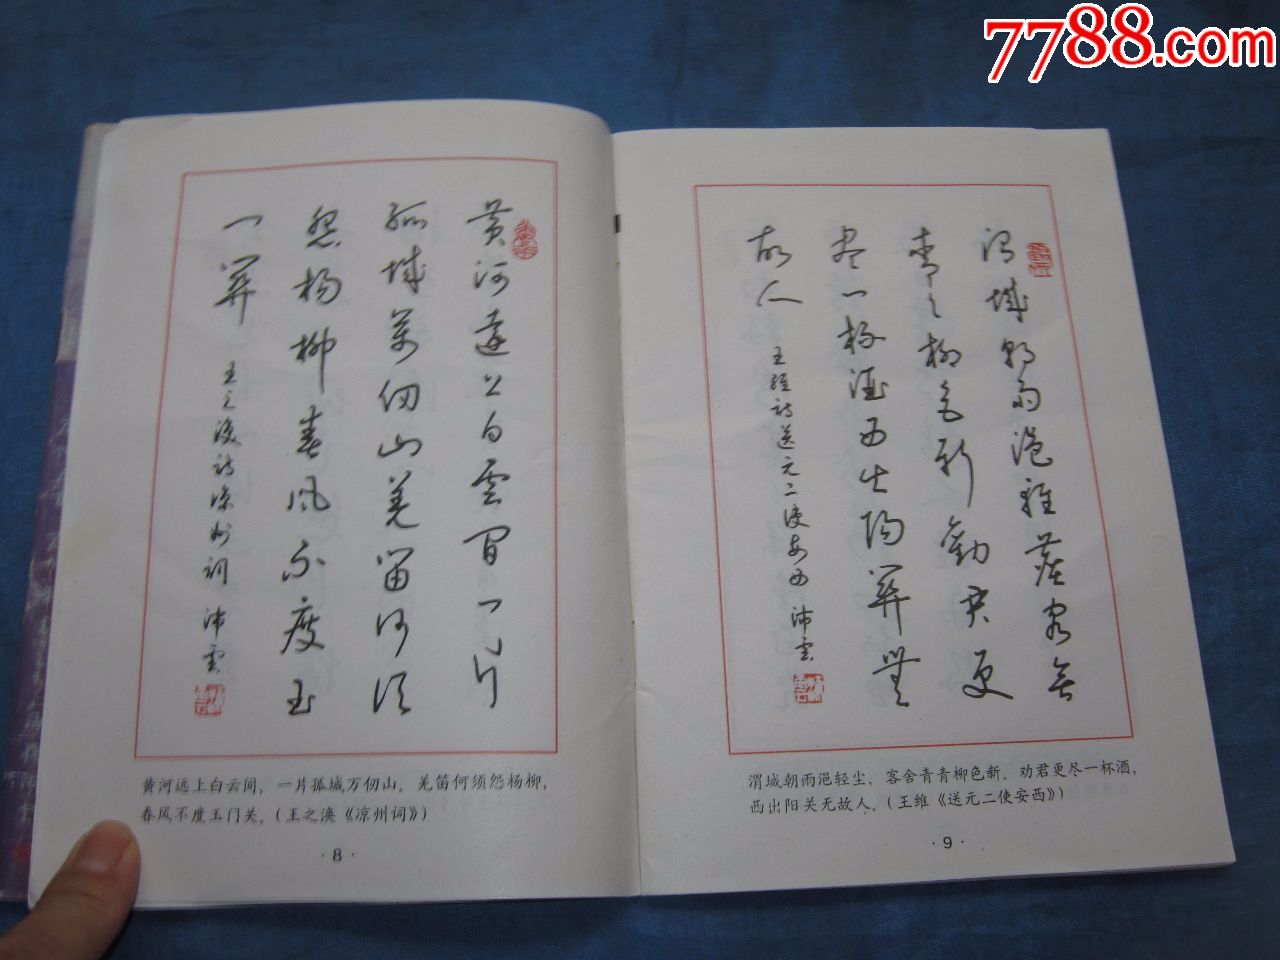 7788.com
黄河遠上白雲間一片
孤城萬仞山羌笛何須
怨楊柳春風不度玉
门關 王之渙詩涼州詞 沛雲
黄河远上白云间，一片孤城万仞山。羌笛何须怨杨柳，
春风不度玉门关。(王之涣《凉州词》)
·8·
渭城朝雨浥輕塵客舍
青青柳色新勸君更
盡一杯酒西出陽關無
故人 王維詩送元二使安西 沛雲
渭城朝雨浥轻尘，客舍青青柳色新。劝君更尽一杯酒，
西出阳关无故人。(王维《送元二使安西》)
·9·